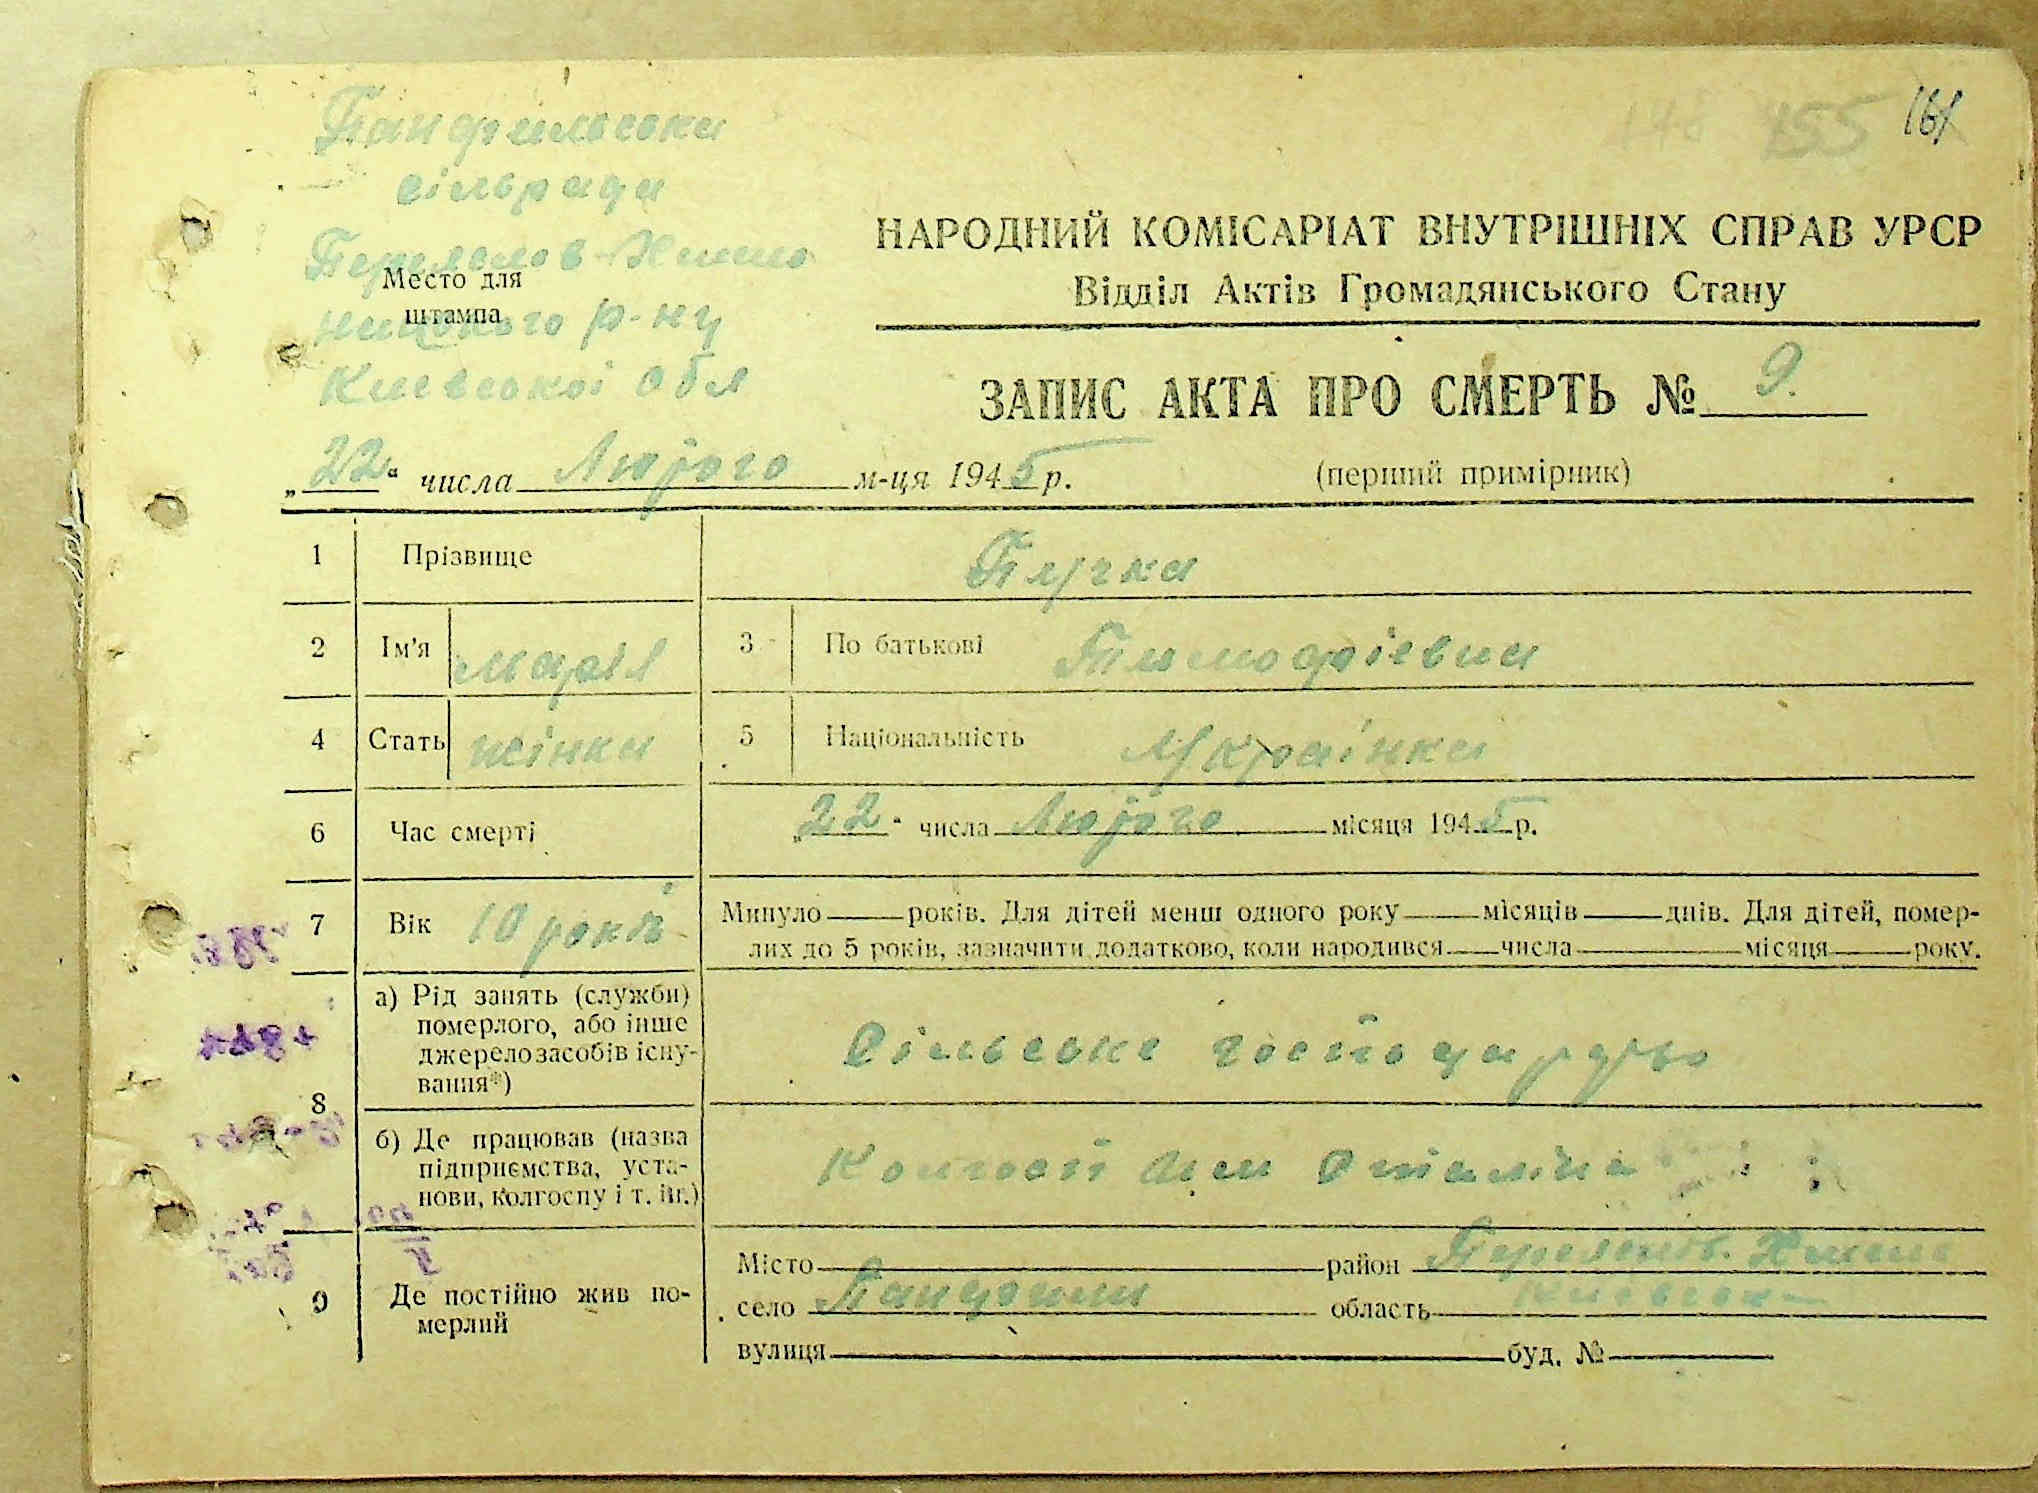 148 155 161
Панфильська
сільрада
Переяслов-Хмель
Место для
штампа
ницького р-ну
Київської обл
НАРОДНИЙ КОМІСАРІАТ ВНУТРІШНІХ СПРАВ УРСР
Відділ Актів Громадянського Стану
ЗАПИС АКТА ПРО СМЕРТЬ № 9.
„22“ числа Лютого м-ця 1945 р.
(перший примірник)
1 Прізвище Пучка
2 Ім'я Марія 3 По батькові Тимофієвна
4 Стать жінка 5 Національність Українка
6 Час смерті „22“ числа Лютого місяця 1945 р.
7 Вік 10 років Минуло років. Для дітей менш одного року місяців днів. Для дітей, помер-
лих до 5 років, зазначити додатково, коли народився числа місяця року.
8 а) Рід занять (служби)
померлого, або інше
джерело засобів існу-
вання*)
Сільське господарство
б) Де працював (назва
підприємства, уста-
нови, колгоспу і т. ін.)
Колгосп Імен Сталіна
9 Де постійно жив по-
мерлий
Місто район Переяслов. Хмель
село Панфили область Київськ
вулиця буд. №